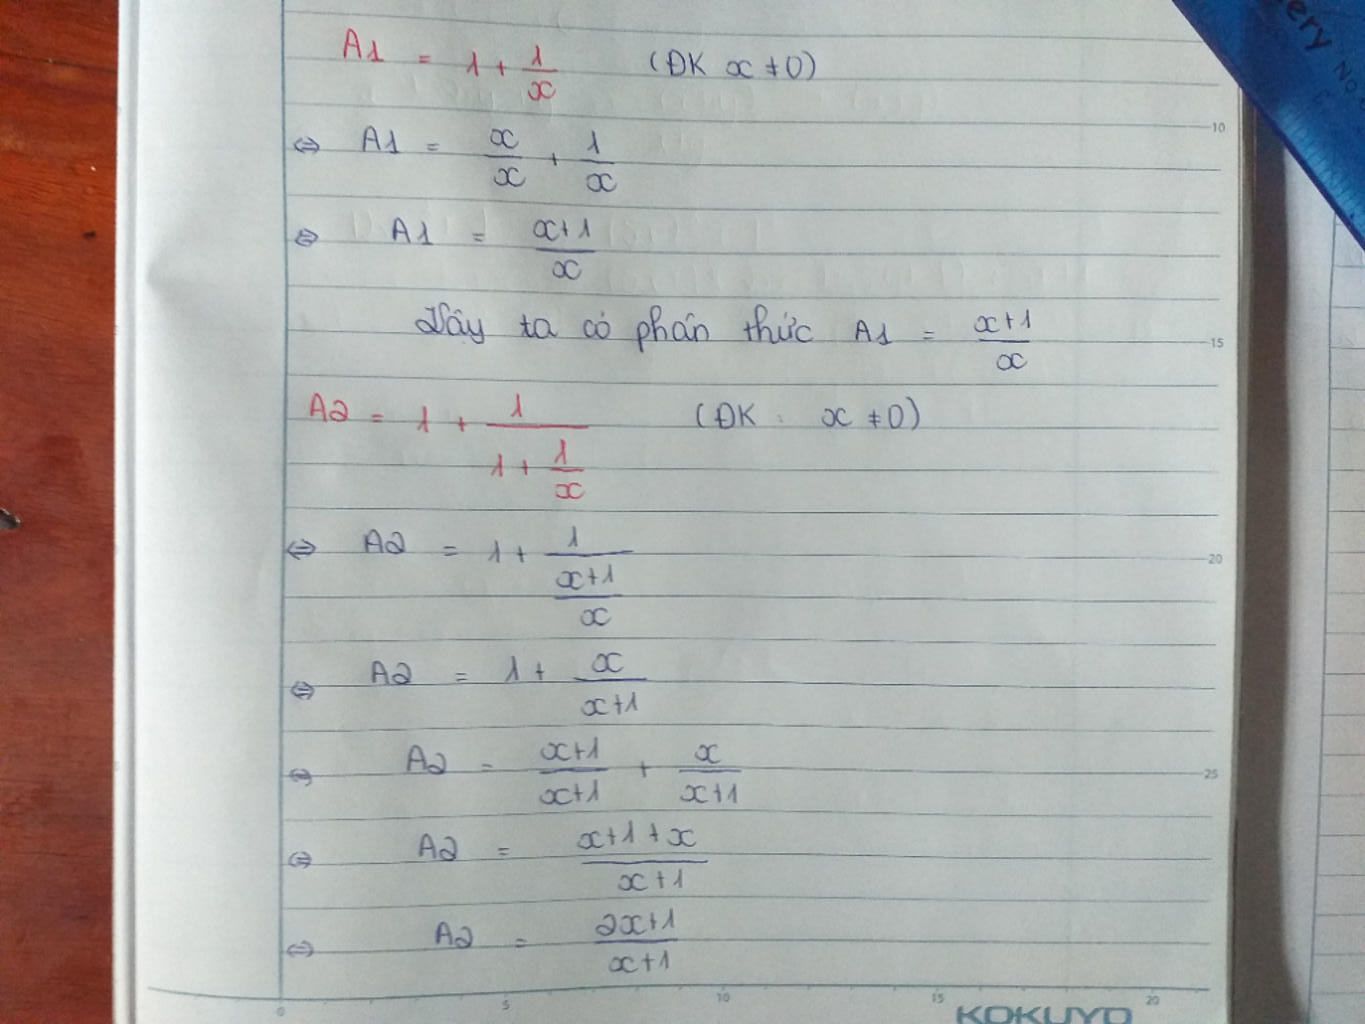 A1 = 1 + 1/x (ĐK x ≠ 0)
⇔ A1 = x/x + 1/x
⇔ A1 = x+1/x
Vậy ta có phân thức A1 = x+1/x
A2 = 1 + 1/(1 + 1/x) (ĐK: x ≠ 0)
⇔ A2 = 1 + 1/((x+1)/x)
⇔ A2 = 1 + x/(x+1)
⇔ A2 = (x+1)/(x+1) + x/(x+1)
⇔ A2 = (x+1+x)/(x+1)
⇔ A2 = (2x+1)/(x+1)
10
15
20
25
0 5 10 15 20
KOKUYO
ery
No